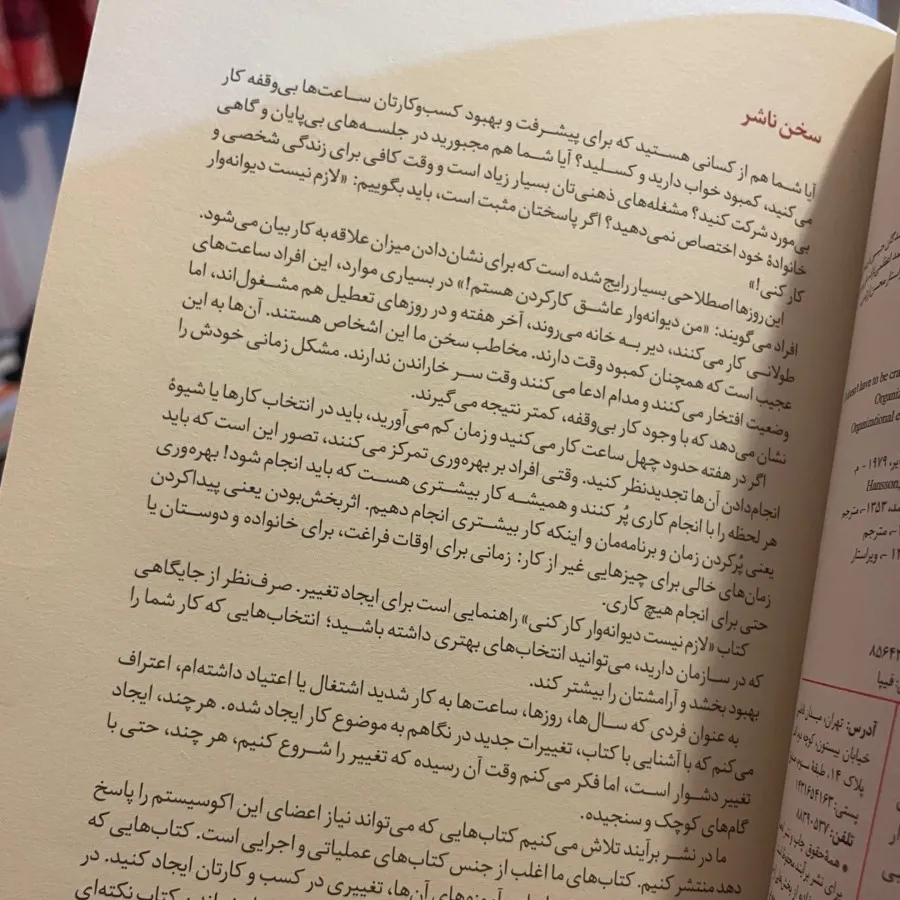 سخن ناشر
آیا شما هم از کسانی هستید که برای پیشرفت و بهبود کسب‌وکارتان ساعت‌ها بی‌وقفه کار
می‌کنید، کمبود خواب دارید و کسلید؟ آیا شما هم مجبورید در جلسه‌های بی‌پایان و گاهی
بی‌مورد شرکت کنید؟ مشغله‌های ذهنی‌تان بسیار زیاد است و وقت کافی برای زندگی شخصی و
خانوادهٔ خود اختصاص نمی‌دهید؟ اگر پاسختان مثبت است، باید بگوییم: «لازم نیست دیوانه‌وار
کار کنی!»
این روزها اصطلاحی بسیار رایج شده است که برای نشان‌دادن میزان علاقه به کار بیان می‌شود.
افراد می‌گویند: «من دیوانه‌وار عاشق کارکردن هستم!» در بسیاری موارد، این افراد ساعت‌های
طولانی کار می‌کنند، دیر به خانه می‌روند، آخر هفته و در روزهای تعطیل هم مشغول‌اند، اما
عجیب است که همچنان کمبود وقت دارند. مخاطب سخن ما این اشخاص هستند. آن‌ها به این
وضعیت افتخار می‌کنند و مدام ادعا می‌کنند وقت سر خاراندن ندارند. مشکل زمانی خودش را
نشان می‌دهد که با وجود کار بی‌وقفه، کمتر نتیجه می‌گیرند.
اگر در هفته حدود چهل ساعت کار می‌کنید و زمان کم می‌آورید، باید در انتخاب کارها یا شیوهٔ
انجام‌دادن آن‌ها تجدیدنظر کنید. وقتی افراد بر بهره‌وری تمرکز می‌کنند، تصور این است که باید
هر لحظه را با انجام کاری پُر کنند و همیشه کار بیشتری هست که باید انجام شود! بهره‌وری
یعنی پُرکردن زمان و برنامه‌مان و اینکه کار بیشتری انجام دهیم. اثربخش‌بودن یعنی پیداکردن
زمان‌های خالی برای چیزهایی غیر از کار: زمانی برای اوقات فراغت، برای خانواده و دوستان یا
حتی برای انجام هیچ کاری.
کتاب «لازم نیست دیوانه‌وار کار کنی» راهنمایی است برای ایجاد تغییر. صرف‌نظر از جایگاهی
که در سازمان دارید، می‌توانید انتخاب‌های بهتری داشته باشید؛ انتخاب‌هایی که کار شما را
بهبود بخشد و آرامشتان را بیشتر کند.
به عنوان فردی که سال‌ها، روزها، ساعت‌ها به کار شدید اشتغال یا اعتیاد داشته‌ام، اعتراف
می‌کنم که با آشنایی با کتاب، تغییرات جدید در نگاهم به موضوع کار ایجاد شده. هرچند، ایجاد
تغییر دشوار است، اما فکر می‌کنم وقت آن رسیده که تغییر را شروع کنیم، هر چند، حتی با
گام‌های کوچک و سنجیده.
ما در نشر برآیند تلاش می‌کنیم کتاب‌هایی که می‌تواند نیاز اعضای این اکوسیستم را پاسخ
دهد منتشر کنیم. کتاب‌های ما اغلب از جنس کتاب‌های عملیاتی و اجرایی است. کتاب‌هایی که
آموزه‌های آن‌ها، تغییری در کسب و کارتان ایجاد کنید. در
کتاب نکته‌ای
have to be
Organiz
Organizational
۱۹۷۹ - م
Hansson,
۱۳۵۳ -، مترجم
-، مترجم
-، ویراستار
فیپا
آدرس: تهران، میدان
خیابان بیستون، کوچه
پلاک ۱۴، طبقه سوم
تلفن: